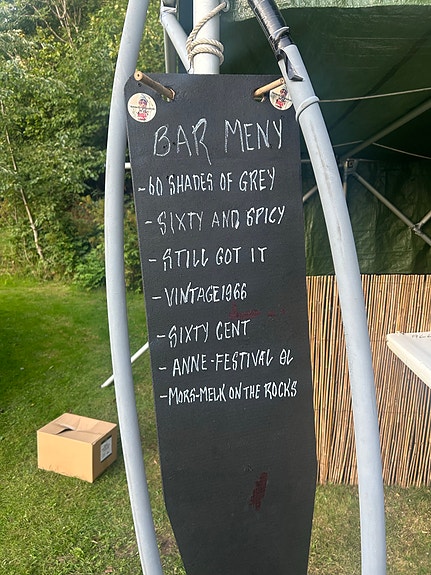 BAR MENY
-60 SHADES OF GREY
-SIXTY AND SPICY
-STILL GOT IT
-VINTAGE1966
-SIXTY CENT
-ANNE-FESTIVAL ØL
-MORS-MELK ON THE ROCKS